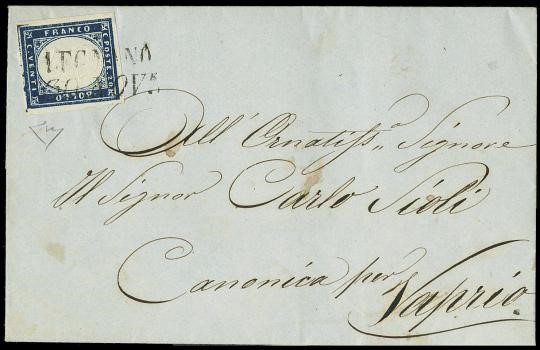 FRANCO
C. POSTE 20
C. VENTI
BOLLO
LEGNANO
30 NOV.
All' Ornatiss.º Signore
Il Signor Carlo Sioli
Canonica per Vaprio